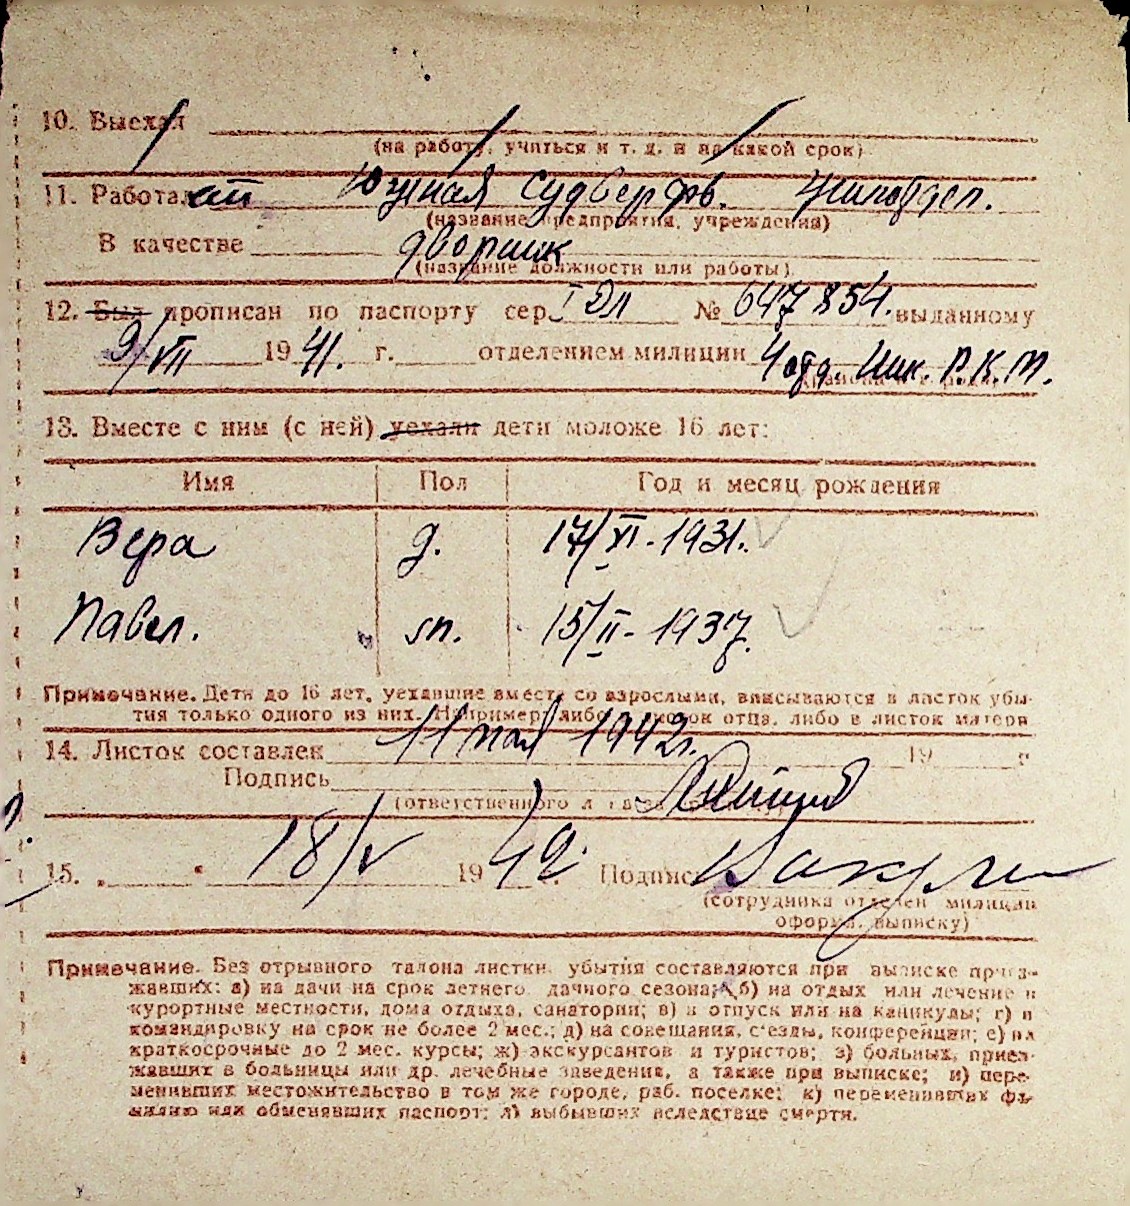 10. Выехал
(на работу, учиться и т. д. и на какой срок)
11. Работает Южная Судверфь. Жилотдел.
(название предприятия, учреждения)
В качестве дворник
(название должности или работы)
12. Был прописан по паспорту сер. I ДЛ № 647854. выданному
9/VII 1941. г. отделением милиции 4 отд. Ник. Р.К.М.
13. Вместе с ним (с ней) уехали дети моложе 16 лет:
Имя Пол Год и месяц рождения
Вера д. 17/XI - 1931.
Павел. м. 15/II - 1937.
Примечание. Дети до 16 лет, уехавшие вместе со взрослыми, вписываются в листок убы-
тия только одного из них. Например: либо в листок отца, либо в листок матери
14. Листок составлен 11 мая 1942 г. 19 г.
Подпись
(ответственного
15. „ “ 18/V 1942. Подпись
(сотрудника отделен милиции
оформ. выписку)
Примечание. Без отрывного талона листки убытия составляются при выписке приез-
жавших: а) на дачи на срок летнего дачного сезона; б) на отдых или лечение в
курортные местности, дома отдыха, санатории; в) в отпуск или на каникулы; г) в
командировку на срок не более 2 мес.; д) на совещания, съезды, конференции; е) на
краткосрочные до 2 мес. курсы; ж) экскурсантов и туристов; з) больных, приез-
жавших в больницы или др. лечебные заведения, а также при выписке; и) пере-
менивших местожительство в том же городе, раб. поселке; к) переменивших фа-
милию или обменявших паспорт; л) выбывших вследствие смерти.